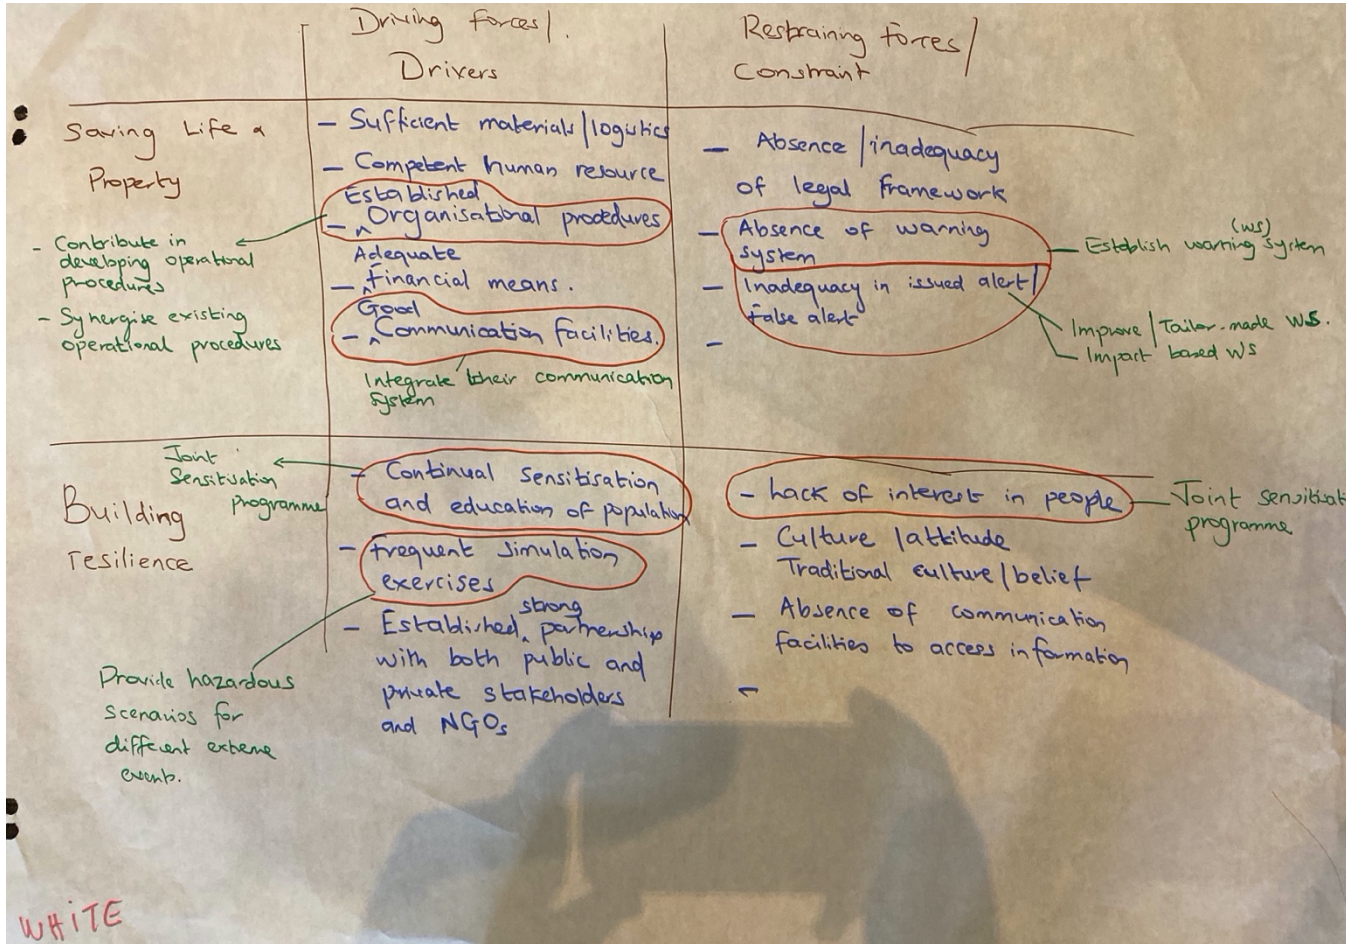 Driving Forces/.
Drivers
Restraining forces/
Constraint
Saving Life &
Property
- Contribute in
developing operational
procedures
- Synergise existing
operational procedures
- Sufficient materials/logistics
- Competent human resource
Established
- ^ Organisational procedures
Adequate
- ^ Financial means.
Good
- ^ Communication facilities.
Integrate their communication
system
- Absence/inadequacy
of legal framework
- Absence of warning
system
- Inadequacy in issued alert/
false alert
-
(WS)
Establish warning system
Improve/Tailor-made WS.
Impact based WS
Building
resilience
Joint
Sensitisation
programme
Provide hazardous
scenarios for
different extreme
events.
- Continual Sensitisation
and education of population
- Frequent simulation
exercises
strong
- Established ^ partnership
with both public and
private stakeholders
and NGOs
- Lack of interest in people
- Culture/attitude
Traditional culture/belief
- Absence of communication
facilities to access information
-
Joint sensitisat
programme
WHITE